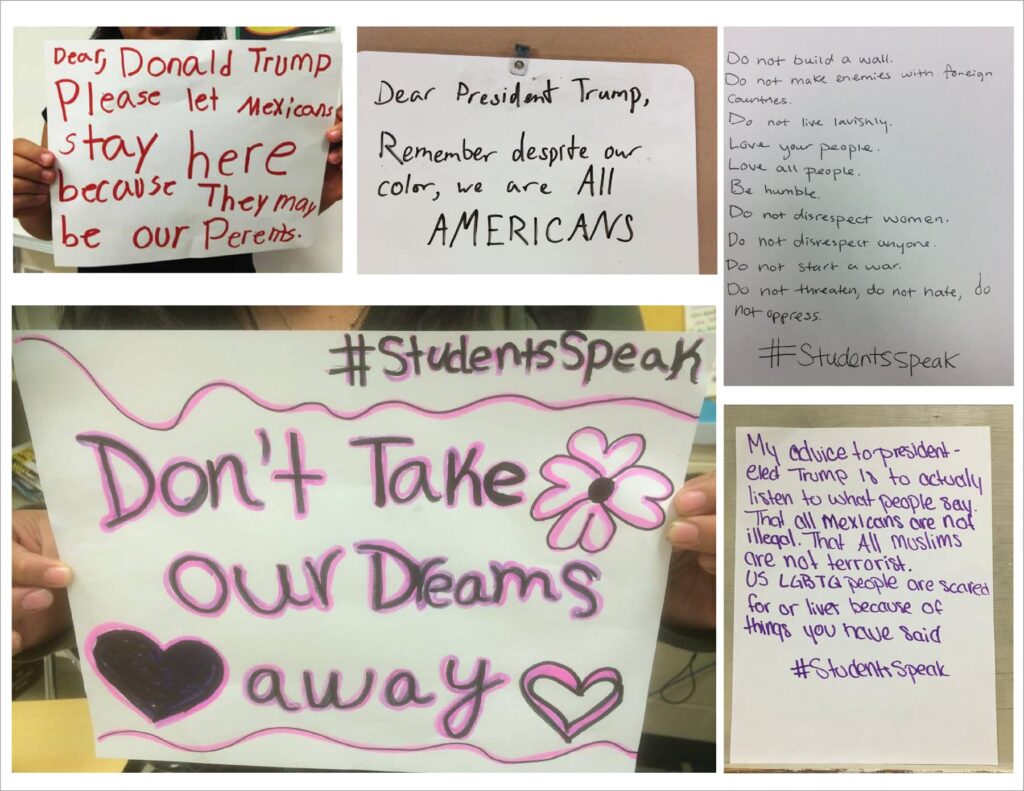 Dear, Donald Trump
Please let Mexicans
stay here
because They may
be our Perents.
Dear President Trump,
Remember despite our
color, we are All
AMERICANS
Do not build a wall.
Do not make enemies with foreign
countries.
Do not live lavishly.
Love your people.
Love all people.
Be humble.
Do not disrespect women.
Do not disrespect anyone.
Do not start a war.
Do not threaten, do not hate, do
not oppress.
#StudentsSpeak
#StudentsSpeak
Don't Take
our Dreams
away
My advice to president-
eled Trump is to actually
listen to what people say.
That all mexicans are not
illegal. That All muslims
are not terrorist.
US LGBTQ people are scared
for or lives because of
things you have said
#StudentsSpeak